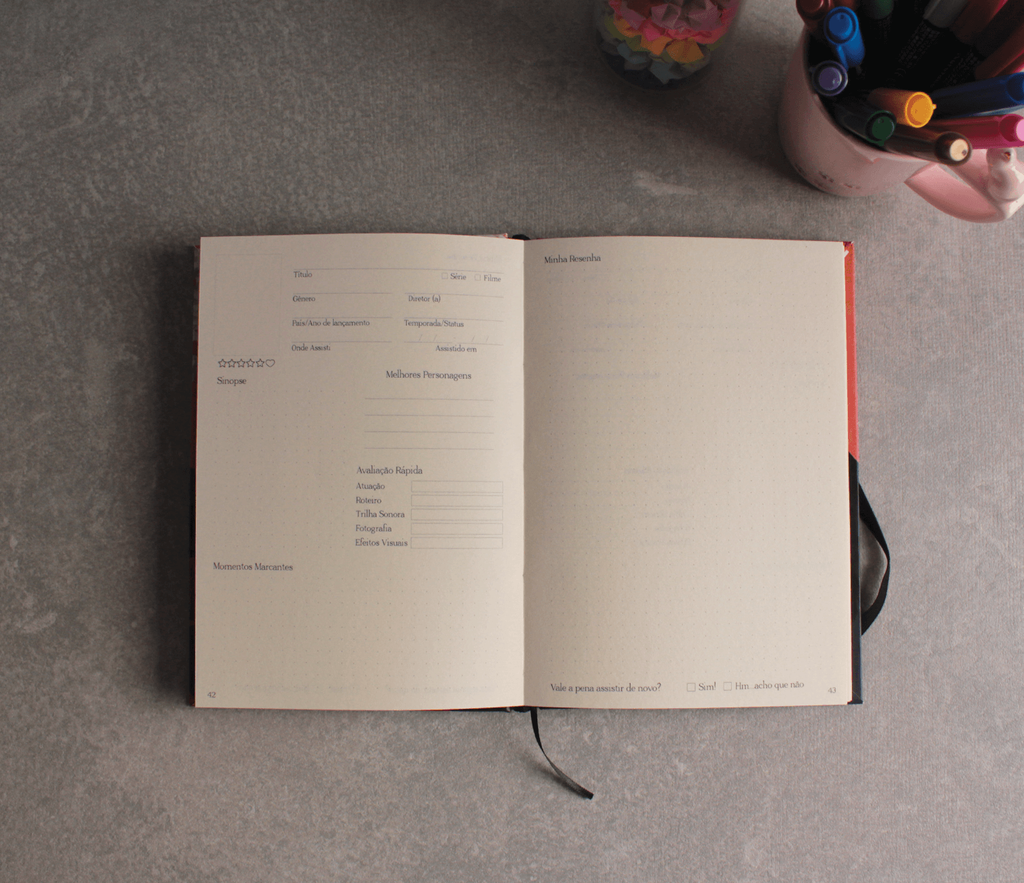 Título
Série Filme
Gênero Diretor (a)
País/Ano de lançamento Temporada/Status
Onde Assisti Assistido em
Sinopse
Melhores Personagens
Avaliação Rápida
Atuação
Roteiro
Trilha Sonora
Fotografia
Efeitos Visuais
Momentos Marcantes
42
Minha Resenha
Vale a pena assistir de novo? Sim! Hm...acho que não
43